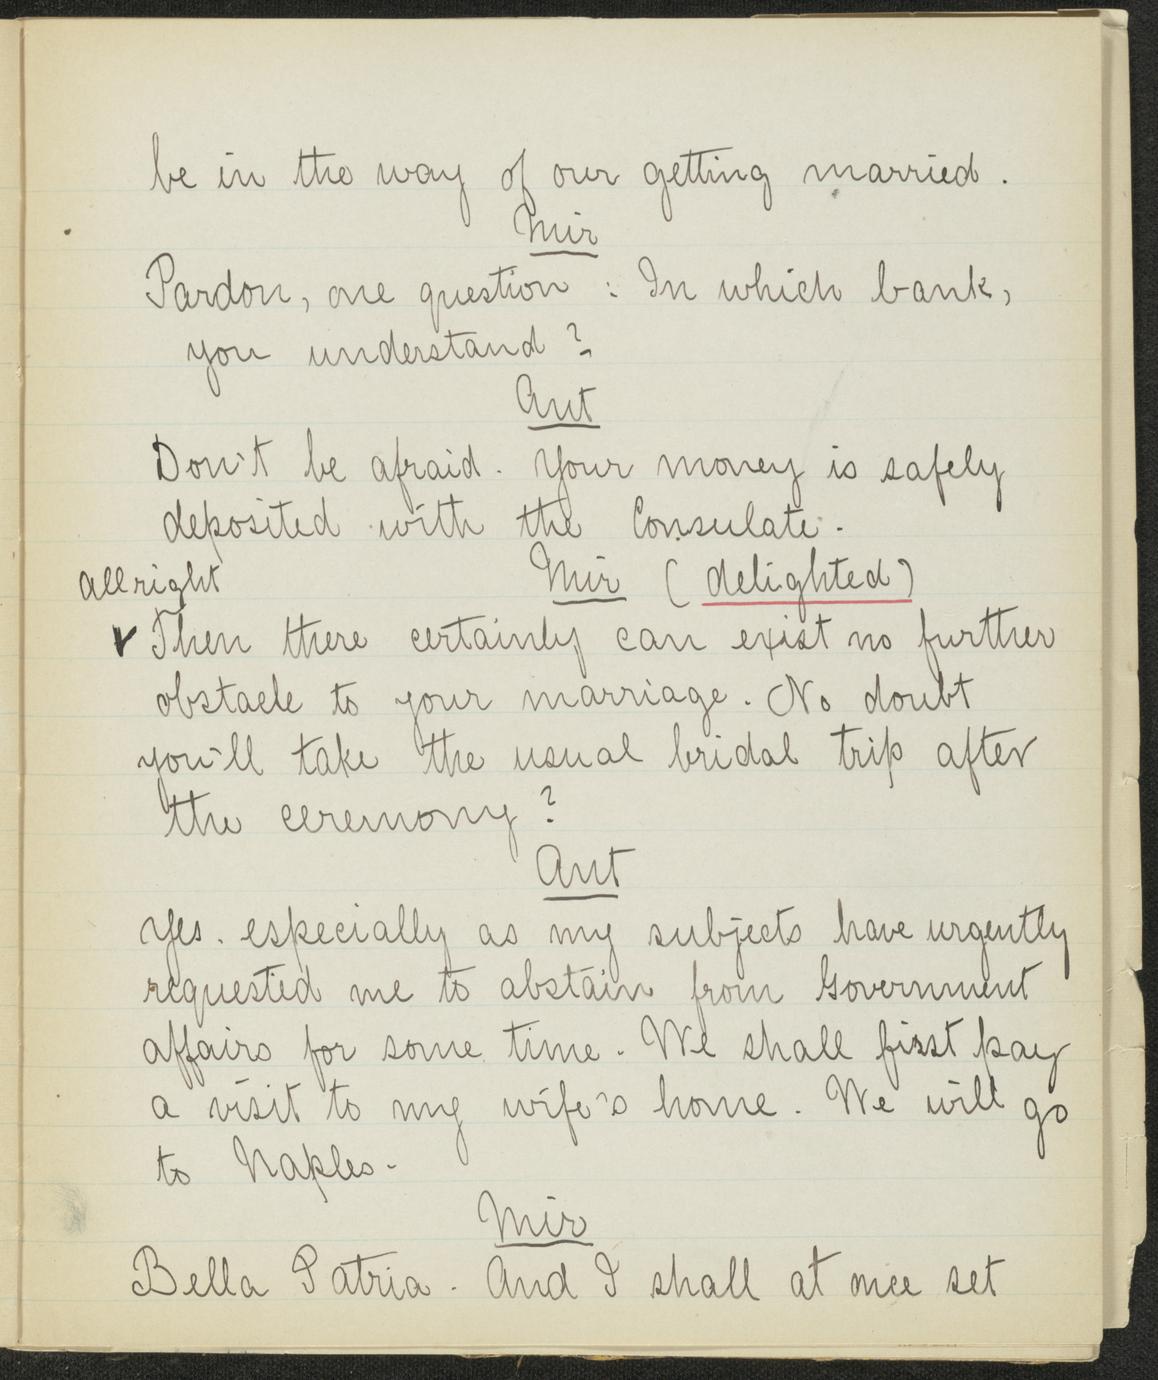 be in the way of our getting married.
Mir
Pardon, one question : In which bank,
you understand ?
Ant
Don't be afraid. Your money is safely
deposited with the Consulate.
allright
Mir (delighted)
Then there certainly can exist no further
obstacle to your marriage. No doubt
you'll take the usual bridal trip after
the ceremony ?
Ant
Yes. especially as my subjects have urgently
requested me to abstain from Government
affairs for some time. We shall first pay
a visit to my wife's home. We will go
to Naples.
Mir
Bella Patria. And I shall at once set